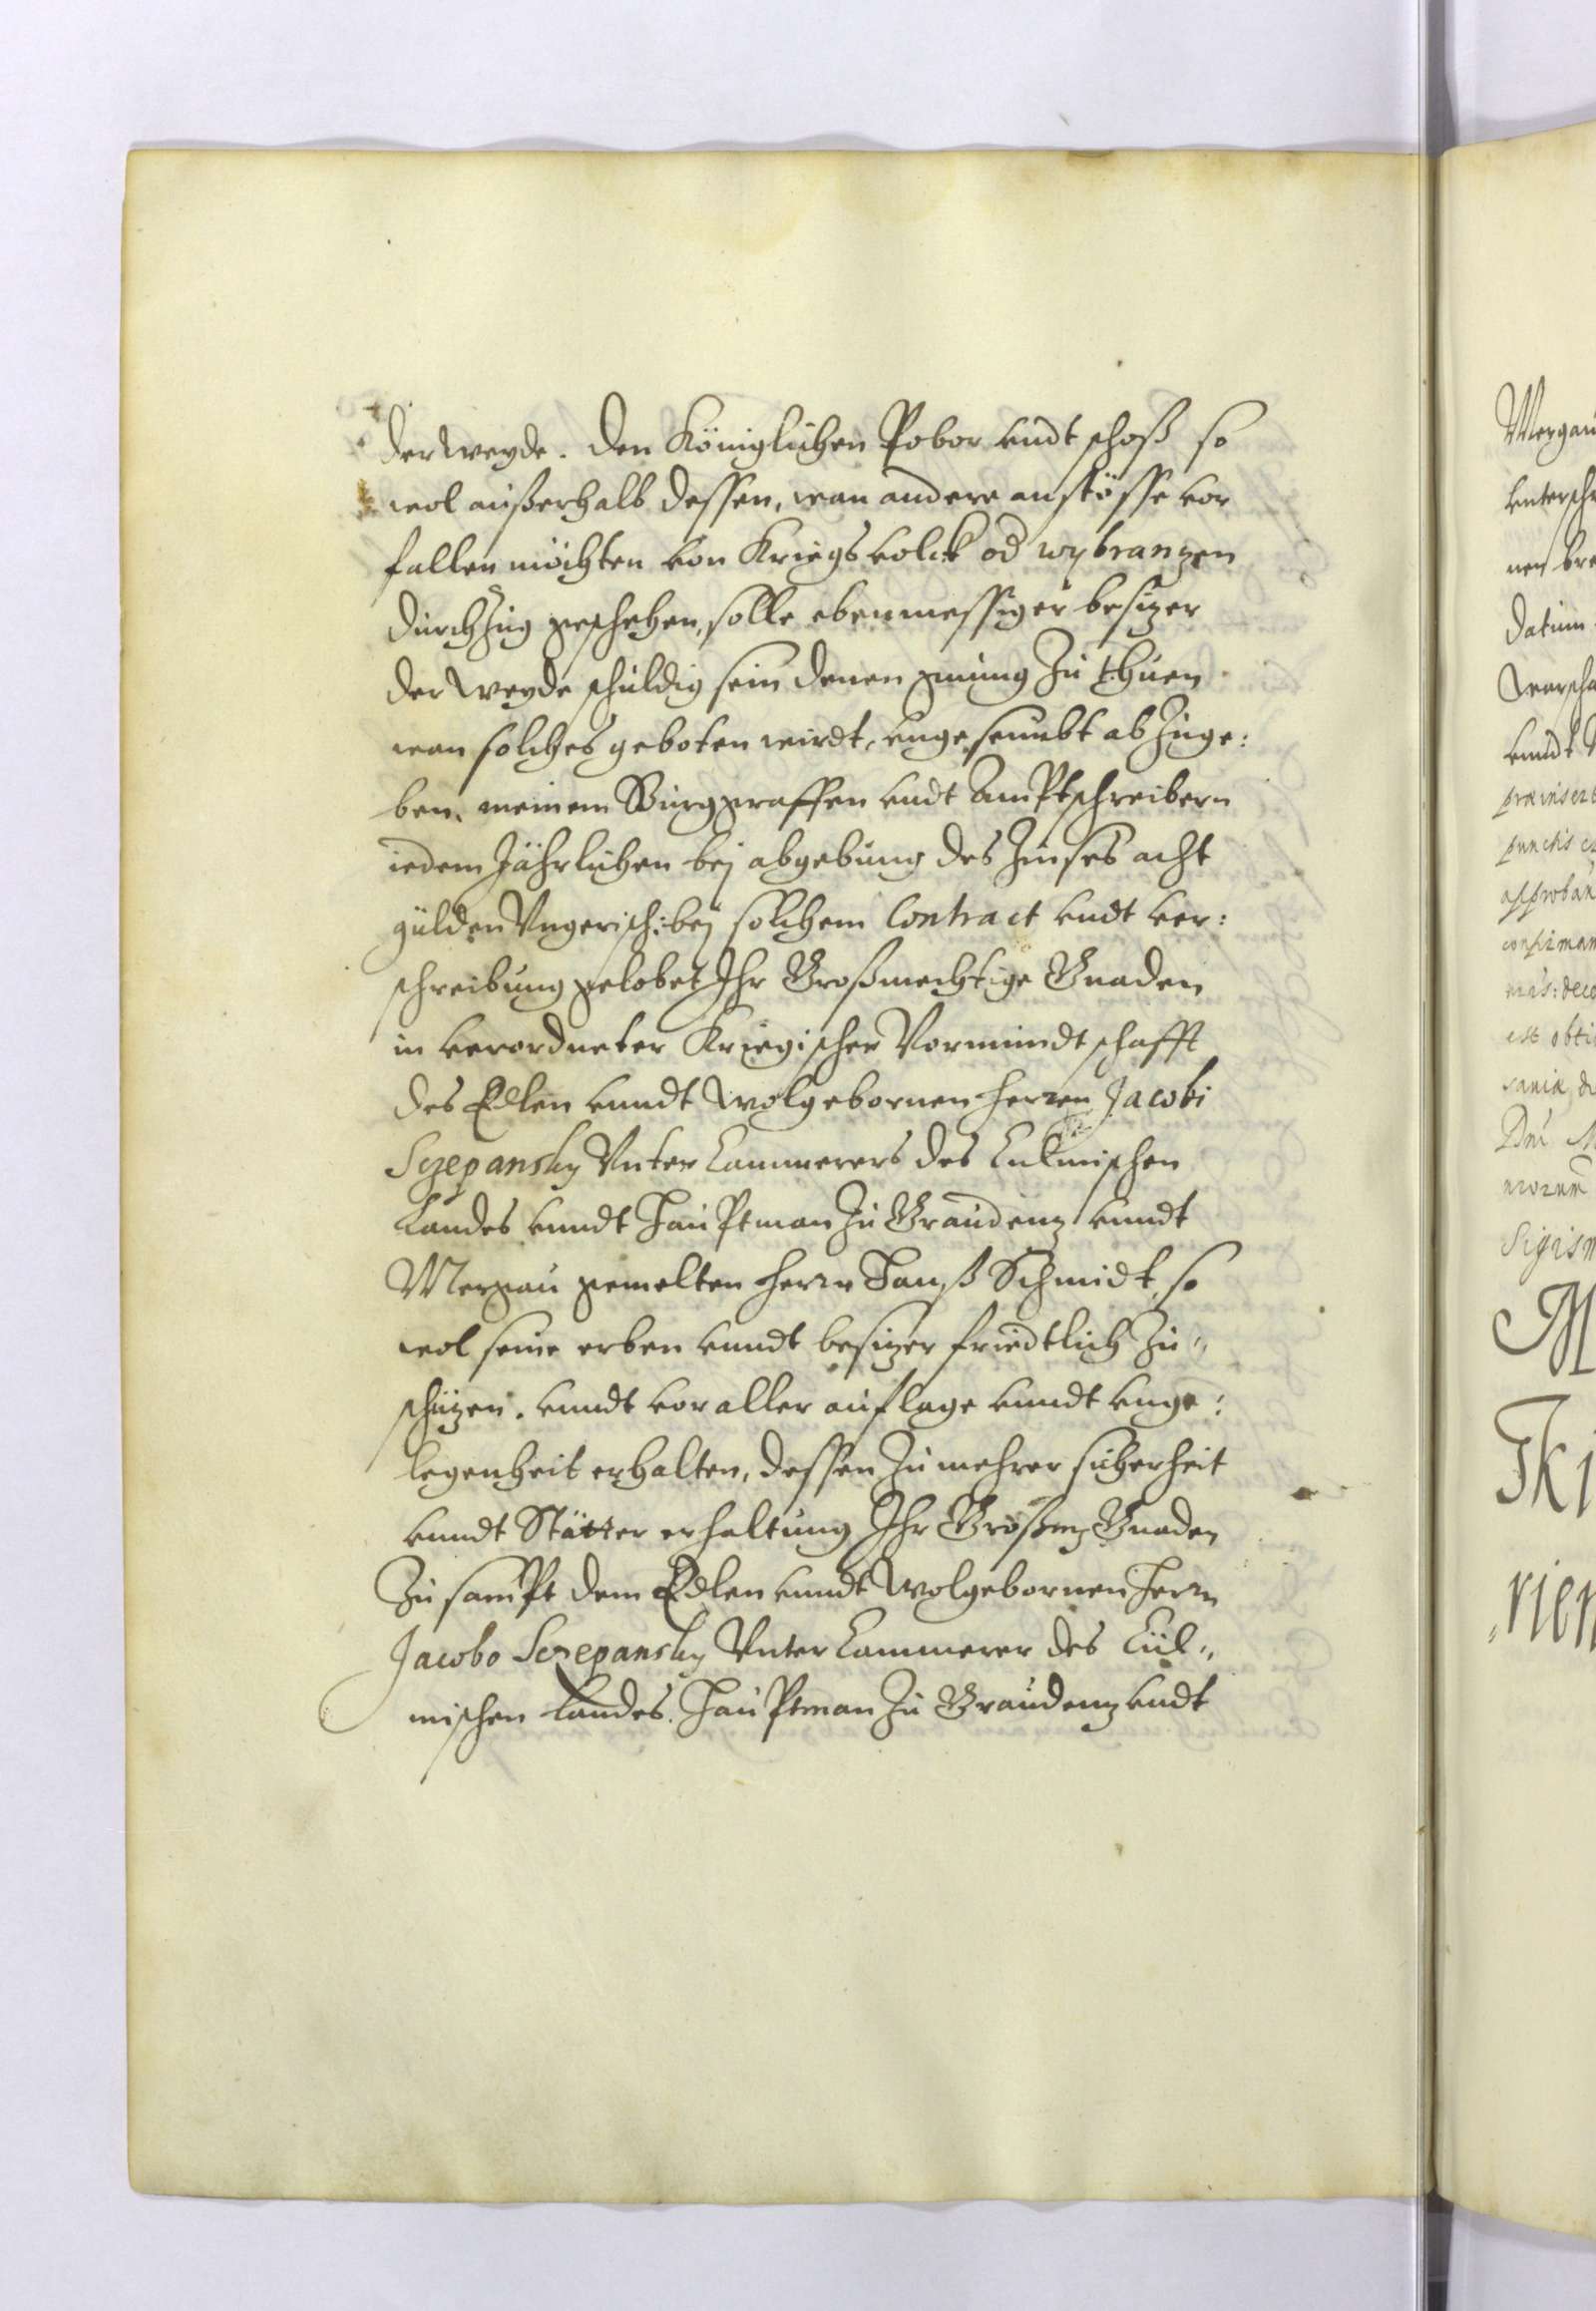 der weyde. den Königlichen Pobor undt schoß so
wol außerhalb dessen, wan andere anstösse vor
fallen möchten von Kriegs volck od wybranzen
durchzug geschehen, solle ebenmessiger besizer
der weyde schuldig sein denen gnung zu thuen
wan solches geboten wirdt, ungeseumbt abzuge:
ben. meinem Burggraffen undt Amptschreibern
iedem Jährlichen bej abgebung des Zinses acht
gulden Vngerisch: bej solchem Contract undt ver:
schreibung gelobet Ihr Großmechtige Gnaden
in verordneter Kriegischer Vormundtschafft
des Edlen unndt wolgebornen herren Jacobi
Sczepansky Vnter Cammerers des Culmischen
Landes unndt Hauptman zu Graudenz unndt
Mergau gemelten herrn Hanß Schmidt, so
wol seine erben unndt besizer friedtlich zu„
schüzen. unndt vor aller auflage unndt unge:
legenheit erhalten, dessen zu mehrer sicherheit
unndt Stätter erhaltung Ihr Großmg Gnaden
Zu sampt dem Edlen unndt wolgebornen Herrn
Jacobo Sczepansky Vnter Cammerer des Cul„
mischen Landes. Hauptman zu Graudenz undt
Mergau
unterschr
datum
unndt
præinsert
punctis
approban
confirman
est obti
Sigism
M